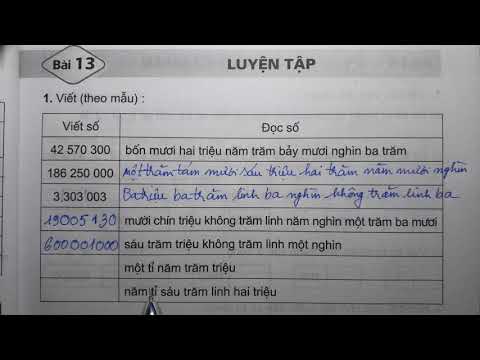 Bài 13
LUYỆN TẬP
1. Viết (theo mẫu) :
Viết số Đọc số
42 570 300 bốn mươi hai triệu năm trăm bảy mươi nghìn ba trăm
186 250 000 một trăm tám mươi sáu triệu hai trăm năm mươi nghìn
3 303 003 Ba triệu ba trăm linh ba nghìn không trăm linh ba
19005130 mười chín triệu không trăm linh năm nghìn một trăm ba mươi
600001000 sáu trăm triệu không trăm linh một nghìn
một tỉ năm trăm triệu
năm tỉ sáu trăm linh hai triệu